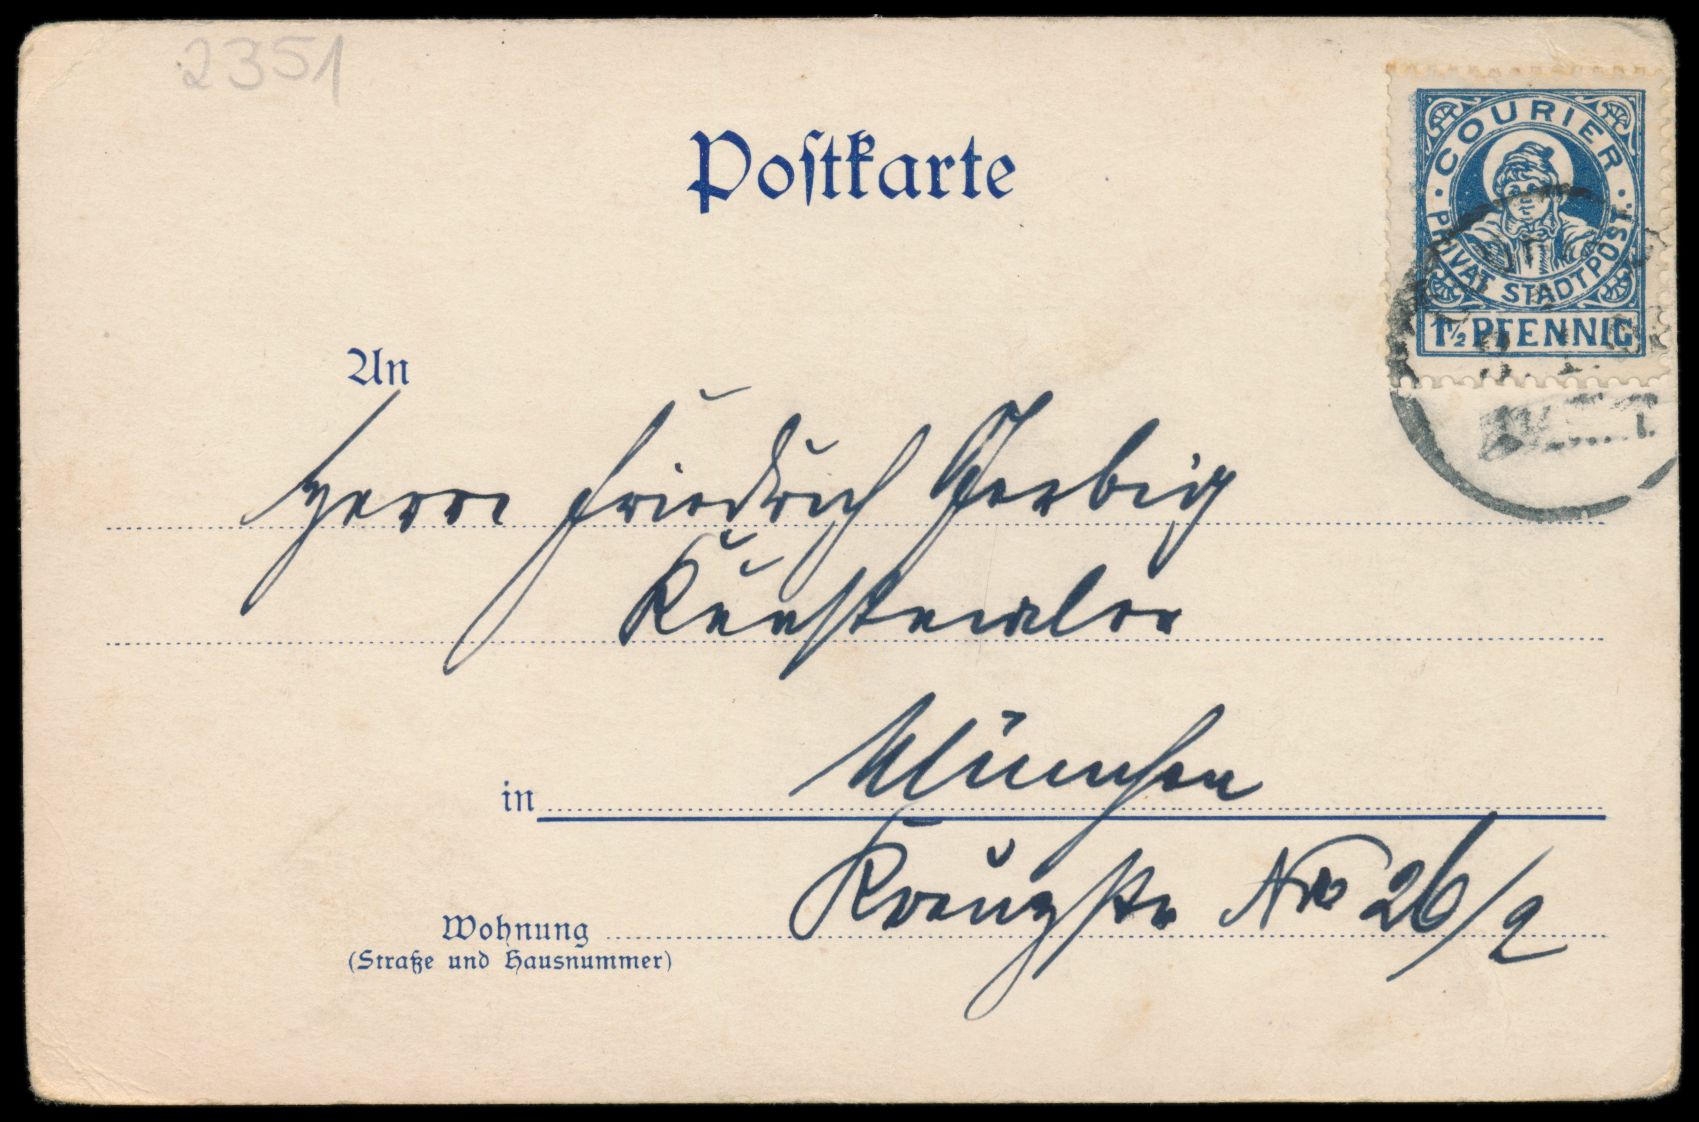 2351
Postkarte
COURIER
PRIVAT STADTPOST.
1½ PFENNIG
An
Herrn Friedrich Gerbig
Kunstmaler
in München
Kreuzstr Nro 26/2
Wohnung
(Straße und Hausnummer)